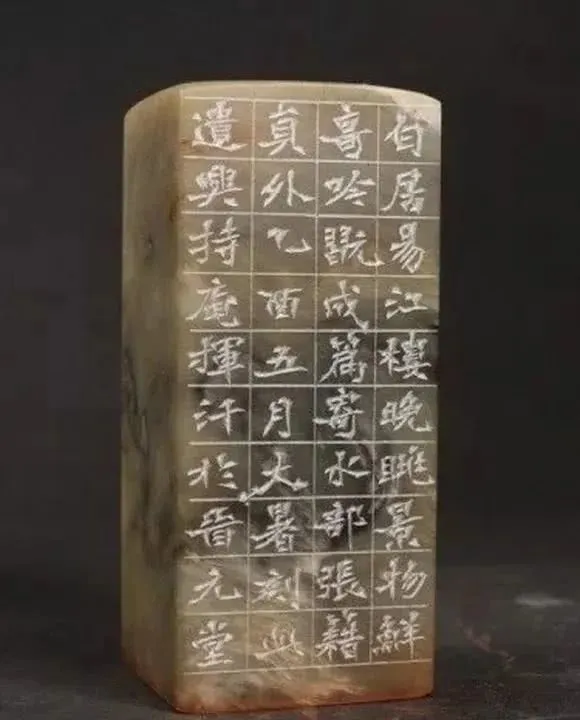 白居易江樓晚眺景物鮮
竒吟翫成篇寄水部張籍
貟外乙酉五月大暑刻此
遺興持庵揮汗於晉元堂